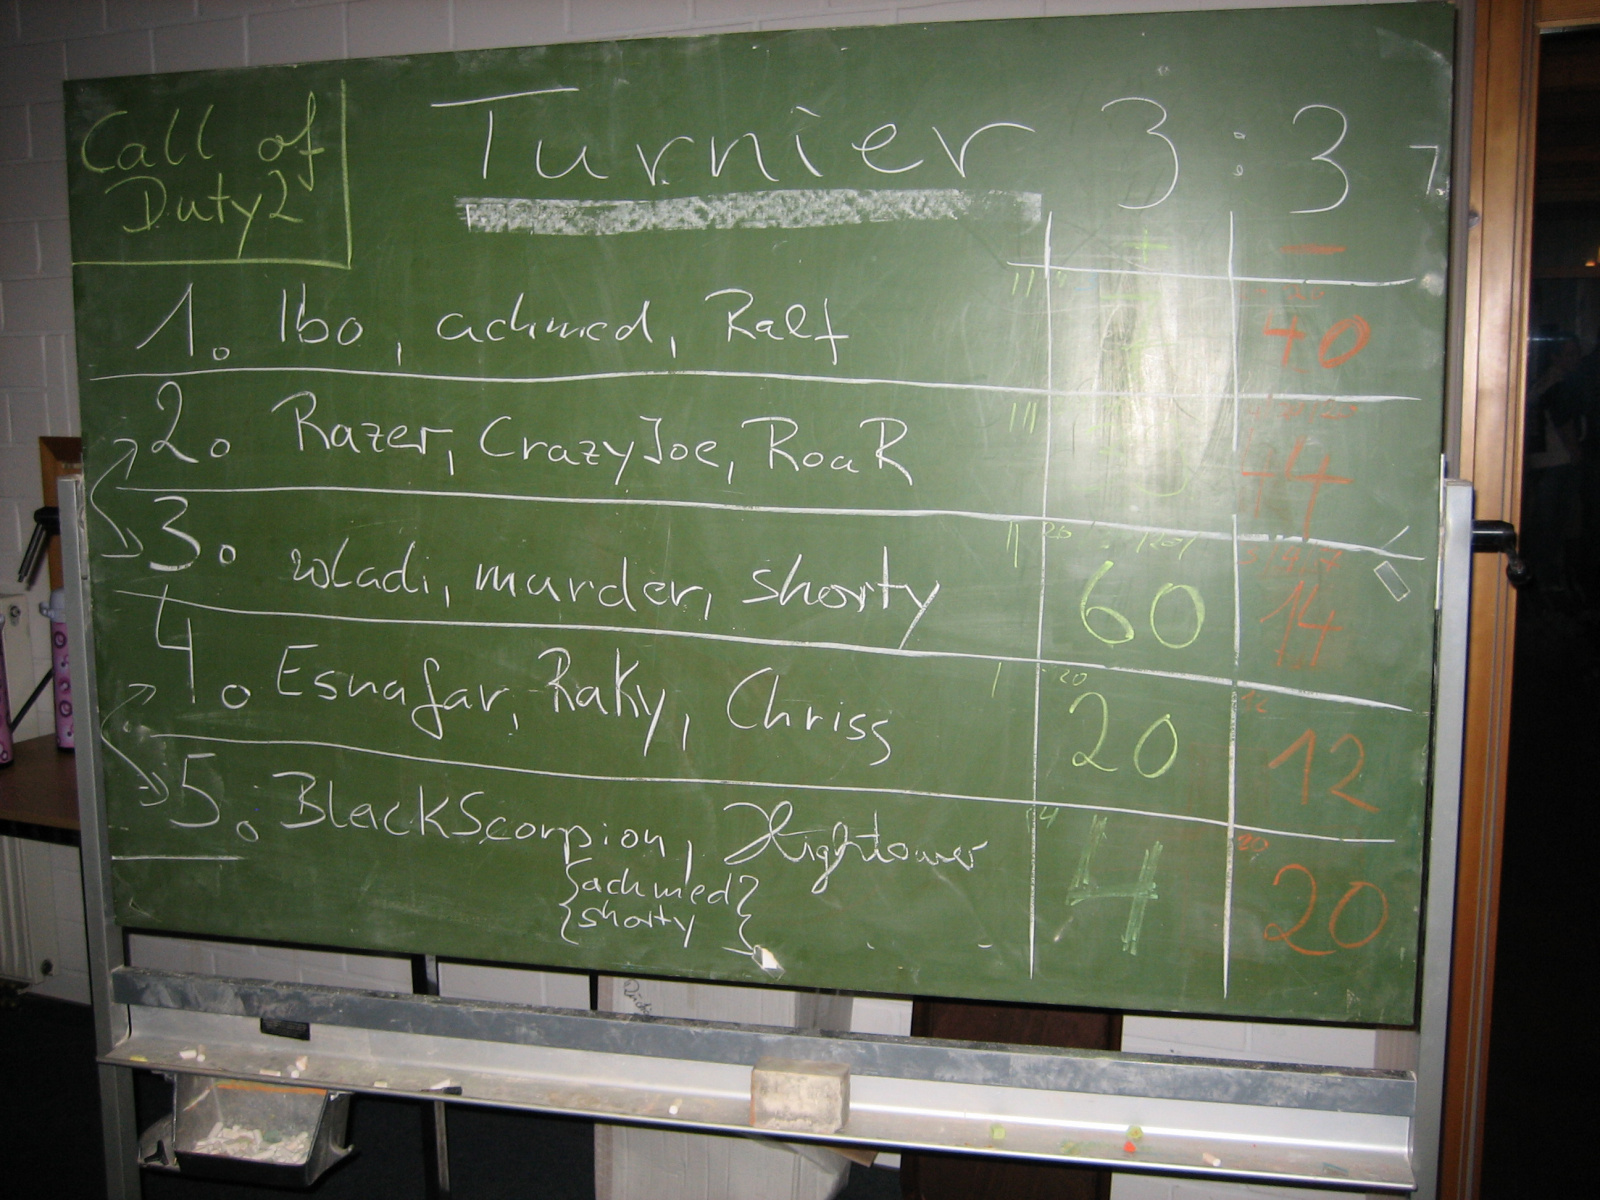 Call of
Duty2
Turnier 3 : 3
+ −
1. Ibo, achmed, Ralf 40
2. Razer, CrazyJoe, RoaR 14
3. wladi, murder, shorty 60 14
4. Esnafar, Raky, Chriss 20 12
5. BlackScorpion, Hightower 4 20
{achmed}
{shorty}